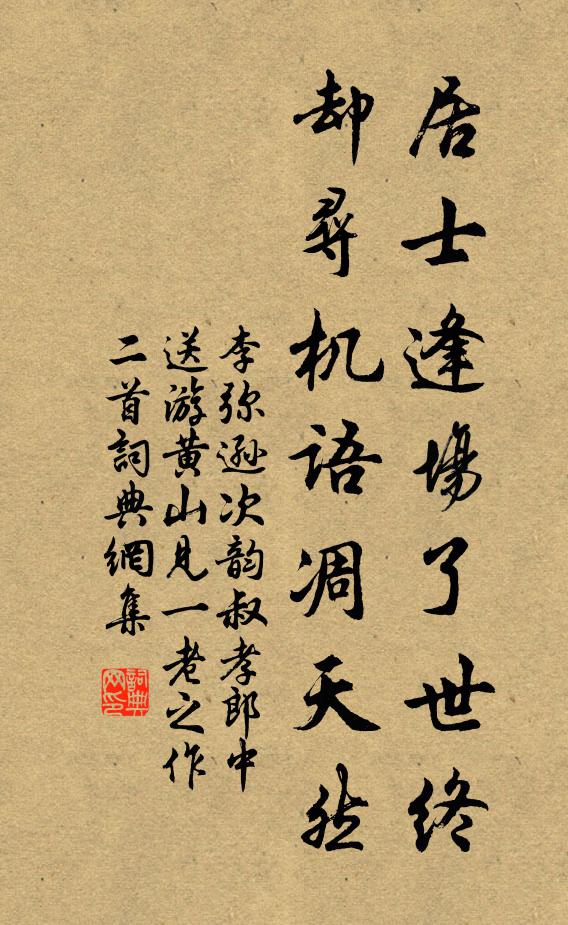 居士逢場了世終
却尋机語凋天然
李弥遜次韵叔孝郎中
送游黄山見一老之作
二首詞典網集
詞典网印